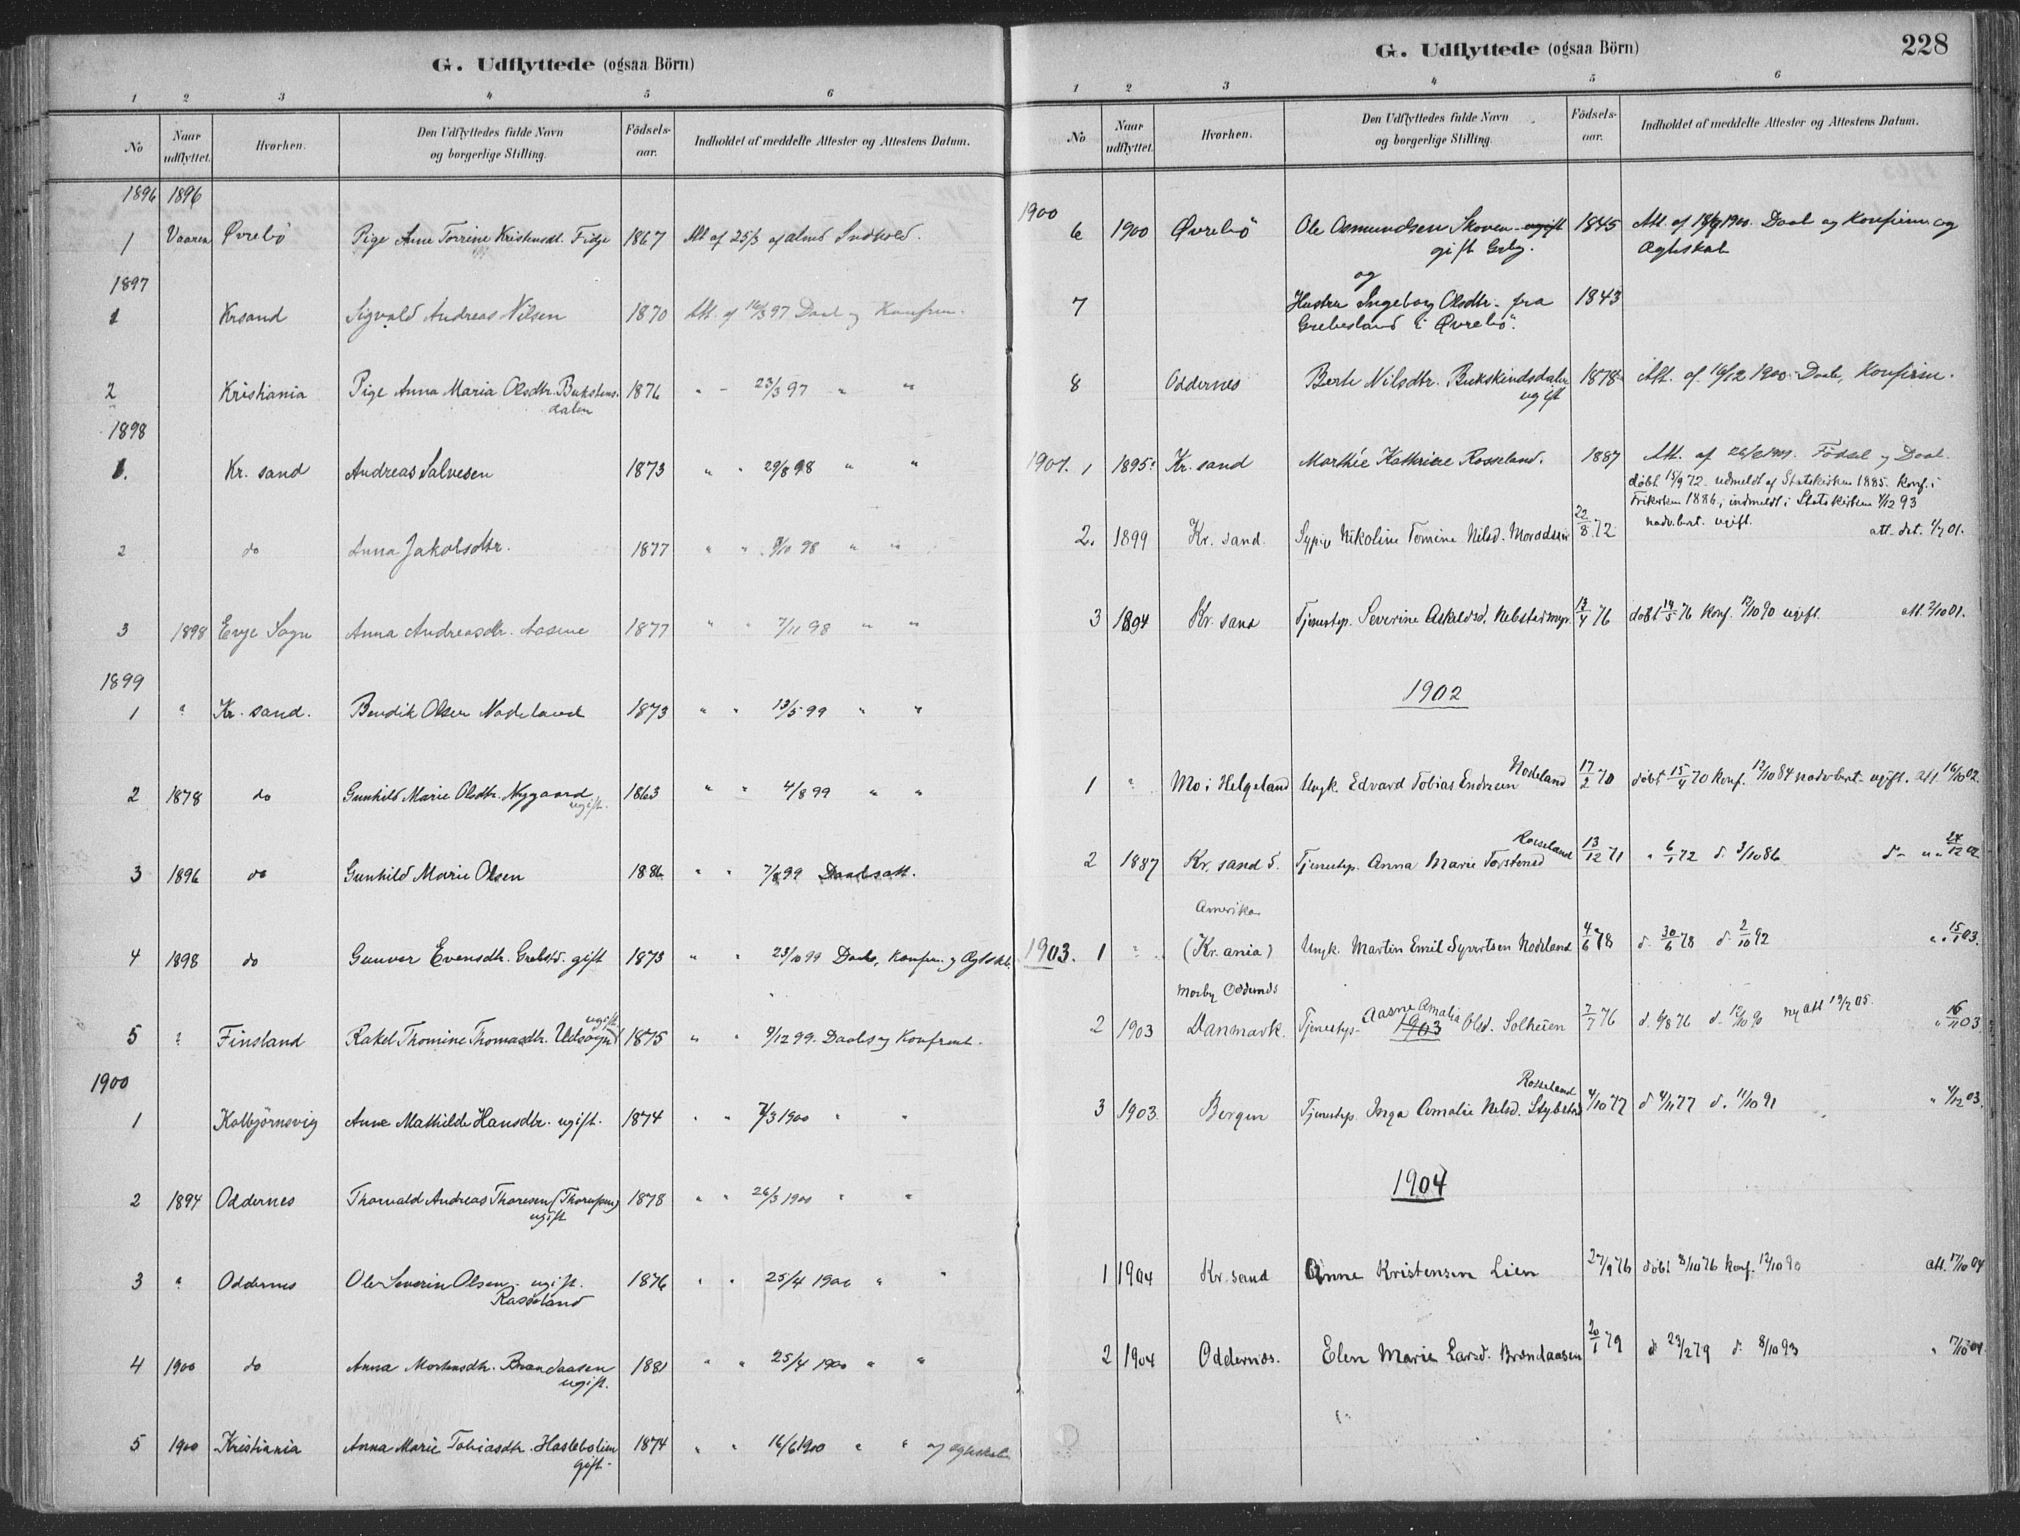 G. Udflyttede (ogsaa Börn)
1 2 3 4 5 6
No Naar udflyttet. Hvorhen. Den Udflyttedes fulde Navn og borgerlige Stilling. Fødsels-aar. Indholdet af meddelte Attester og Attestens Datum.
1896 1896
1 Vaaren Øvrebö Pige Anne Torrine Kristensdt. Fidje 1867 Att af 25/3 af almd Indhold.
1897
1 Krsand Sigvald Andreas Nilsen 1870 Att. af 16/3 97 Daab og Konfirm.
2 Kristiania Pige Anna Maria Olsdtr. Buksteins- 1876 " - 23/3 97 " "
dalen
1898
1. Kr. sand Andreas Salvesen 1873 " " 29/8 98 " "
2 do Anna Jakobsdtr. 1877 " " 9/10 98 " "
3 1898 Evje Sogn Anna Andreasdtr. Aasene 1877 " " 7/11 98 " "
1899
1 " Kr. sand. Bendik Olsen Nodeland 1873 " " 13/5 99 " "
2 1878 do Gunhild Marie Olsdtr. Nygaard 1863 " " 4/8 99 " "
ugift.
3 1896 do Gunhild Marie Olsen 1886 " " 7/8 99 Daabsatt.
4 1898 do Gunver Evensdtr. gift 1873 " " 23/10 99 Daabs, Konfirm. og Ægtesk.
ugift
5 " Finsland Rakel Thomine Thomasdtr. Udsögnd 1875 " " 9/12 99. Daabs og Konfirmt.
1900
1 Kolbjörnsvig Anne Mathilde Hansdtr. ugift. 1874 " " 7/3 1900 " "
2 1894 Oddernes Thorvald Andreas Thoresen 1878 " " 26/3 1900 " "
ugift
3 " Oddernes Ole Severin Olsen. ugift. 1876 " " 25/4 1900 " "
Rasseland
4 1900 do Anna Mortensdtr. Brandaasen 1881 " " 25/4 1900 " "
ugift.
5 1900 Kristiania Anna Marie Tobiasdtr. 1874 " " 16/6 1900 " " og
gift.
G. Udflyttede (ogsaa Börn) 228
1 2 3 4 5 6
No Naar udflyttet. Hvorhen. Den Udflyttedes fulde Navn og borgerlige Stilling. Fødsels-aar. Indholdet af meddelte Attester og Attestens Datum.
1900
6 1900 Øvrebö Ole Osmundsen Skoven ugift 1845 Att. af 1900. Daab og Konfirm. og
gift Gbr. Ægteskab
og
7 Hustru Ingeborg Olsdtr. fra 1843
Grebesland i Øvrebö.
8 Oddernes Berte Nilsdtr. 1878 Att. af 16/12 1900 Daab, Konfirm.
ugift
1901. 1 1895 Kr. sand Marthée Kathrine Rosseland. 1887 Att. af Fødsel og Daab.
döbt 15/9 72. udmeldt af Statskirken 1885. konf. i
Frikirken 1886, indmeldt i Statskirken 4/12 93
nadv.ber. ugift.
2. 1899 Kr. sand. Sypige Nikoline Tomine Nilsd. 22/8 72 att. det. 1/7 01.
3 1894 Kr. sand Tjenestep. Severine Askeldsd. 13/4 76 döbt 14/5 76 konf. 12/10 90 ugift. att. 2/10 01.
1902
Nodeland
1 " Mo i Helgeland Ungk. Edvard Tobias Endresen 17/2 70 döbt 15/4 70 konf. 12/10 84 nadv.beret. ugift. att 16/10 02.
Rosseland
2 1887 Kr. sand S. Tjenestep. Anna Marie Torstensd 13/12 71 " 6/1 72 d. 3/10 86 d- " " 24/12 02
Amerika
1903. 1 " (Kr.ania) Ungk. Martin Emil Syvertsen Nodeland 4/6 78 d. 30/6 78 d. 2/10 92 " " 15/1 03.
Mosby Oddernes
Aasne Amalia
2 1903 Danmark. Tjenestep. 1903 Olsd. Solheien 2/7 76 d. 6/8 76 d. 12/10 90 ny att 19/2 05. " 16/11 03
Rosseland
3 1903. Bergen Tjenestep. Inga Amalie Nilsd. 4/10 77 d 4/11 77 d. 11/10 91 " 4/12 03.
1904
1 1904 Kr. sand Anne Kristensen Lien 27/9 76 döbt 8/10 76 konf. 12/10 90 att. 17/10 04
2 1904 Oddernes. Elen Marie Larsd. Brandaasen 20/1 79 d 23/2 79 d. 8/10 93 " 17/10 04.